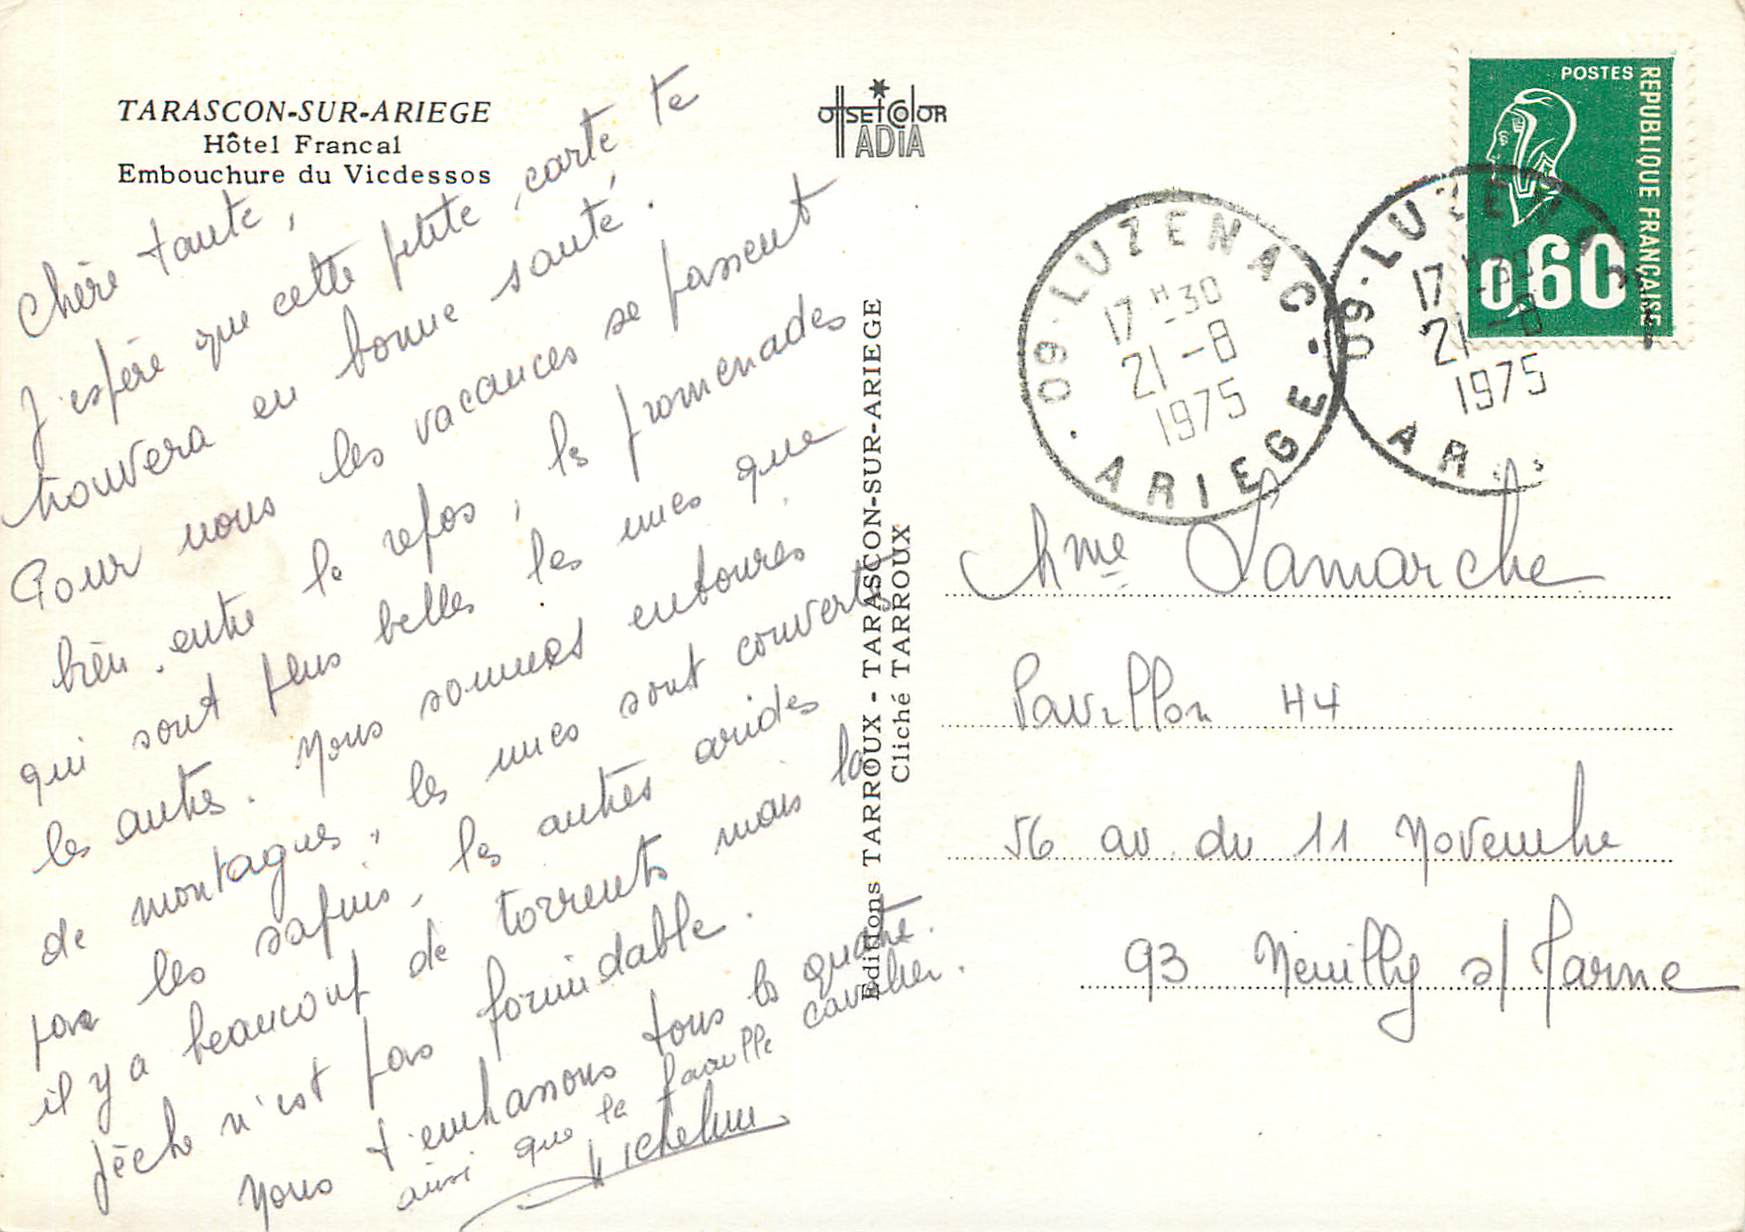 TARASCON-SUR-ARIEGE
Hôtel Francal
Embouchure du Vicdessos
OffsetColor
ADIA
Chère tante,
J'espère que cette petite carte te
trouvera en bonne santé.
Pour nous les vacances se passent
bien, entre le repos, les promenades
qui sont plus belles les unes que
les autres. Nous sommes entourés
de montagnes, les unes sont couvertes
par les sapins, les autres arides
il y a beaucoup de torrents mais la
pêche n'est pas formidable.
Nous t'embrassons tous les quatre.
ainsi que la famille Cavelier.
Micheline
Editions TARROUX - TARASCON-SUR-ARIEGE
Cliché TARROUX
POSTES
REPUBLIQUE FRANÇAISE
0,60
09 - LUZENAC - ARIEGE
17 H 30
21 - 8
1975
09 - LUZENAC
17 H 30
21 - 8
1975
AR
Mme Lamarche
Pavillon 44
56 av du 11 Novembre
93 Neuilly s/ Marne